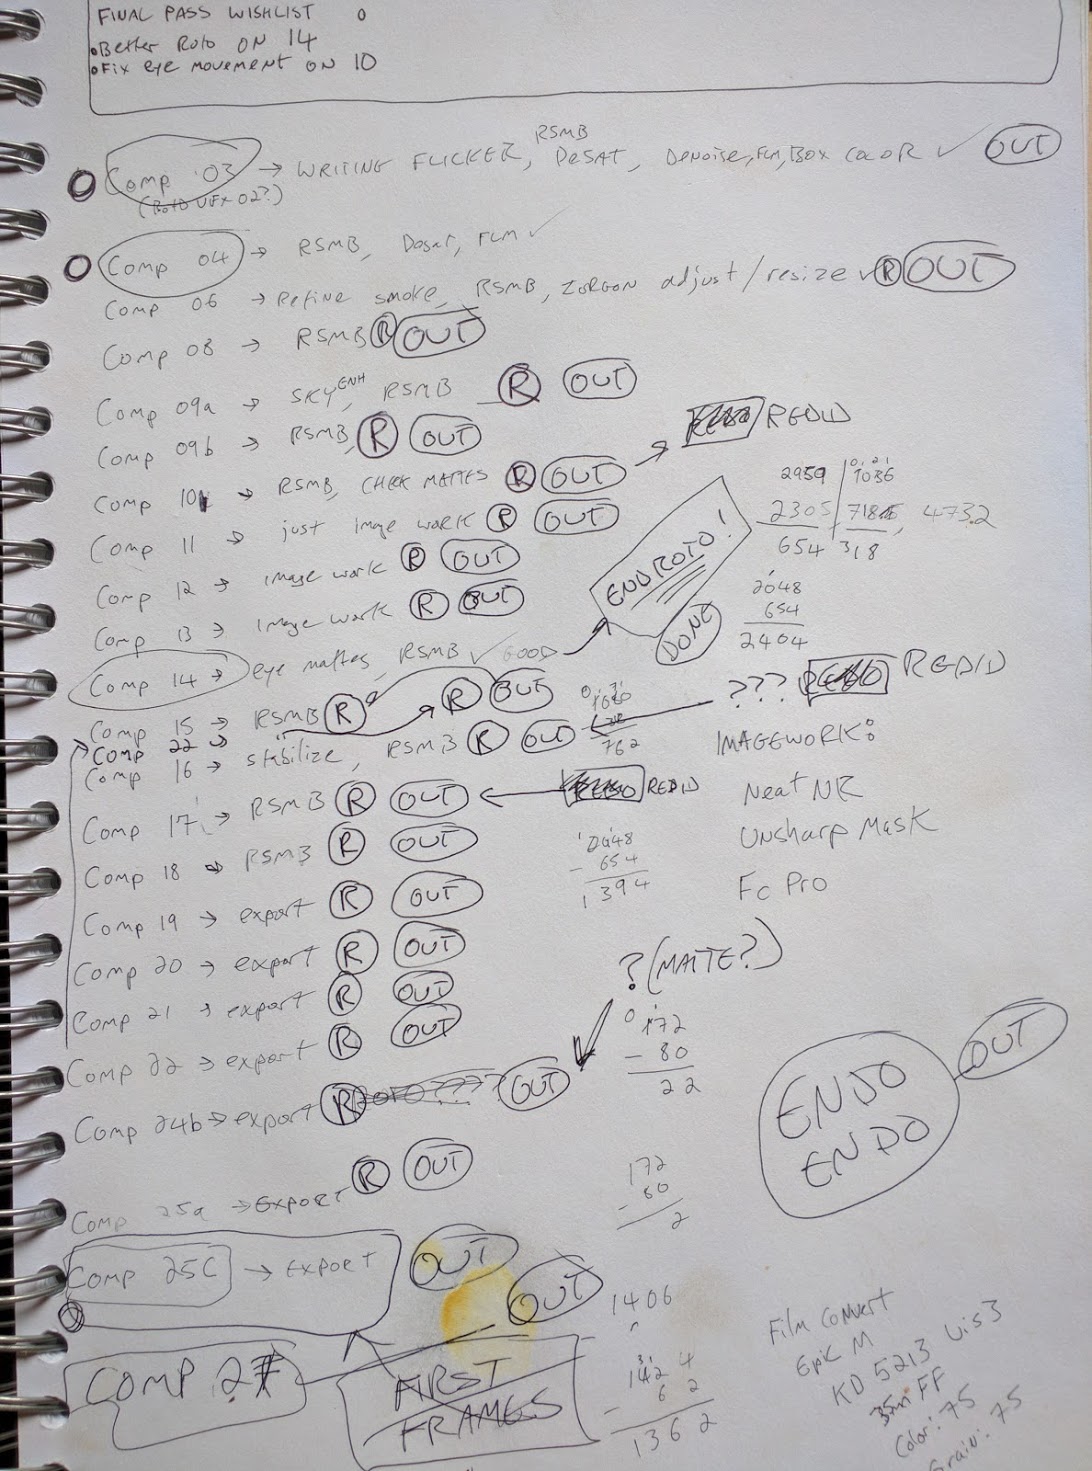 FINAL PASS WISHLIST
•Better Roto ON 14
•Fix eye movement ON 10
RSMB
Comp 03 → WRITING FLICKER, DeSAT, Denoise, FLM, BOX COLOR ✓ OUT
(Roto VFX 02?)
Comp 04 → RSMB, Desat, FLM ✓
Comp 06 → Refine smoke, RSMB, ZORGON adjust/resize ✓ R OUT
Comp 08 → RSMB R OUT
Comp 09a → SKY ENH, RSMB R OUT
Comp 09b → RSMB, R OUT
Comp 10 → RSMB, CHECK MATTES R OUT → REDID
Comp 11 → just image work R OUT
Comp 12 → image work R OUT
Comp 13 → image work R OUT
END ROTO!
DONE
Comp 14 → eye mattes, RSMB ✓ GOOD
Comp 15 → RSMB R
Comp 22 → R OUT
Comp 16 → stabilize, RSMB R OUT ??? REDID
Comp 17 → RSMB R OUT ← REDID
Comp 18 → RSMB R OUT
Comp 19 → export R OUT
Comp 20 → export R OUT
Comp 21 → export R OUT
Comp 22 → export R OUT
Comp 24b → export R OUT
Comp 25a → Export R OUT
Comp 25C → Export OUT
COMP 27 OUT
FIRST
FRAMES
2959 1036
2305 718 4732
654 318
2048
654
2404
762
2048
- 654
1394
IMAGEWORK:
Neat NR
Unsharp Mask
Fc Pro
?(MATTE?)
172
- 80
22
ENDO
ENDO
OUT
172
- 80
2
1406
1362
Film Convert
Epic M
KD 5213 Vis3
35m FF
Color: 75
Grain: 75